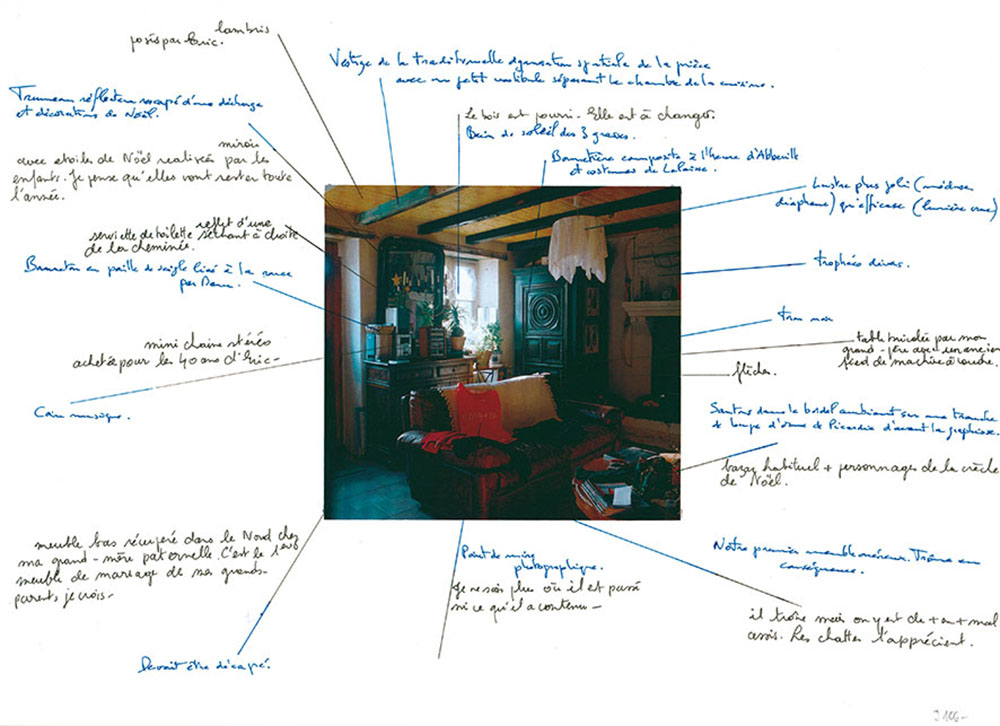 lambris
posés par Eric.
Vestige de la traditionnelle organisation spatiale de la pièce
avec un petit vestibule séparant la chambre de la cuisine.
Trumeau réflecteur rescapé d'une décharge
et décorations de Noël.
Le bois est pourri. Elle est à changer.
Bain de soleil des 3 grâces.
miroir
avec etoiles de Noël réalisées par les
enfants. Je pense qu'elles vont rester toute
l'année.
Bonnetière composite à l'heure d'Abbeville
et costumes de Lalaisse.
Lustre plus joli (méduse
diaphane) qu'efficace (lumière crue)
reflet d'une
serviette de toilette séchant à droite
de la cheminée.
Banneton en paille de seigle liée à la ronce
par
trophées divers.
Trou noir
mini chaine stéréo
achetée pour les 40 ans d'Eric-
table bricolée par mon
grand-père avec un ancien
pied de machine à coudre.
flèches.
Coin musique.
Santons dans le bordel ambiant sur une tranche
de loupe d'orme de Picardie d'avant la graphiose.
bazar habituel + personnages de la crèche
de Noël.
meuble bas récupéré dans le Nord chez
ma grand-mère paternelle. C'est le 1er
meuble de mariage de mes grands-
parents, je crois-
Point de mire
photographique.
Je ne sais plus où il est passé
ni ce qu'il a contenu-
Notre premier meuble
conséquence.
il trône mais on y est de + en + mal
assis. Les chattes l'apprécient.
Devrait être décapé.